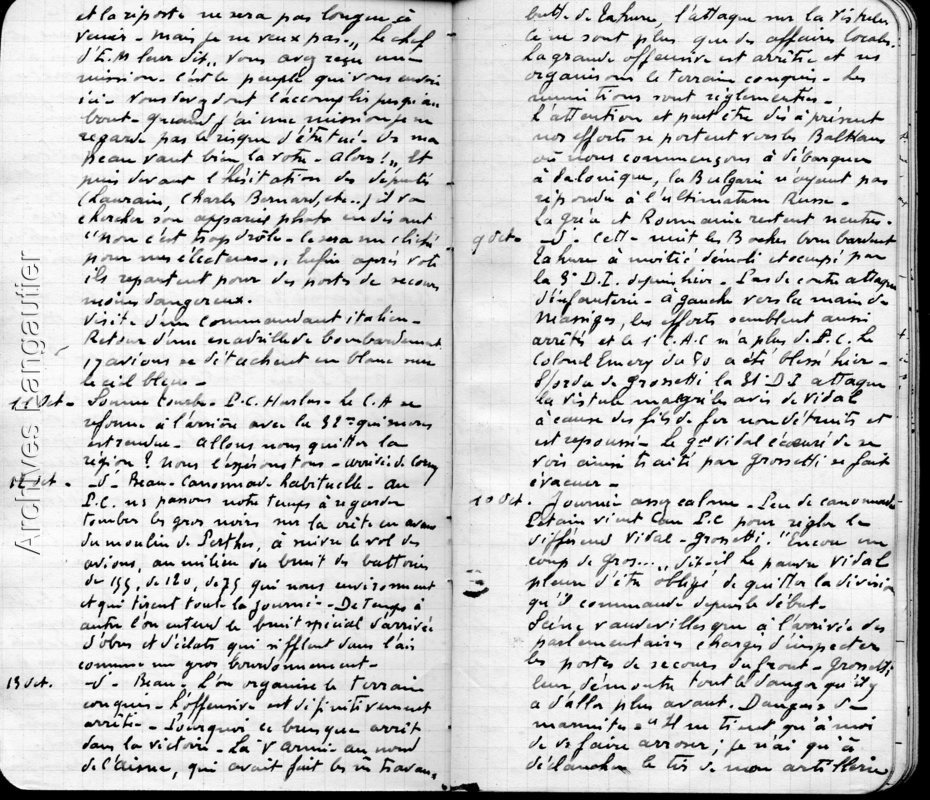 et la riposte ne sera pas longue à
venir - mais je ne veux pas. „ Le chef
d'E.M leur dit „ Vous avez reçu une
mission - c'est le peuple qui vous envoie
ici - Vous devez dont l'accomplir jusqu'au
bout - quand j'ai une mission je ne
regarde pas le risque d'être tué - Or ma
peau vaut bien la votre - Alors! „ Et
puis devant l'hésitation des députés
(Lauraine, Charles Bernard, etc..) il va
chercher son appareil photo en disant
"Non c'est trop drôle - ce sera un cliché
pour mes électeurs. „ Enfin après
ils repartent pour des postes de secours
moins dangereux.
Visite d'un commandant italien -
Retour d'une escadrille de bombardement
17 avions se détachent en blanc sur
le ciel bleu -
11 Oct - Bonne couche - P.C. Harlas - Le C.A se
reforme à l'arrière avec la qui nous
est rendue - Allons nous quitter la
région ? Nous l'espérons tous - arrivée de
12 Oct - -d°- Beau - Canonnade habituelle - au
P.C. ns passons notre temps à regarder
tomber les gros noirs sur la crête en avant
du moulin de Perthes, à suivre le vol des
avions, au milieu du bruit des batteries
de 155, de 120, de 75 qui nous environnent
et qui tirent toute la journée - De temps à
autre l'on entend le bruit spécial d'arrivée
d'obus et d'éclats qui sifflent dans l'air
comme un gros bourdonnement -
13 Oct. -d°- Beau - L'on organise le terrain
conquis - L'offensive est définitivement
arrêtée - Pourquoi ce brusque arrêt
dans la victoire - La V armée au nord
de l'Aisne, qui avait fait les travaux
butte de Tahure, l'attaque sur la Vistule
ce ne sont plus que des affaires locales.
La grande offensive est arrêtée et ns
organisons le terrain conquis - Les
munitions sont réglementées -
L'attention et peut être dès à présent
nos efforts se portent vers les Balkans
où nous commençons à débarquer
à Salonique, la Bulgarie n'ayant pas
répondu à l'ultimatum Russe -
La grèce et Roumanie restent neutres -
9 Oct - -d°- Cette nuit les Boches bombardent
Tahure à moitié démoli et occupé par
la D.I. depuis hier - Pas de contre attaque
d'infanterie - A gauche vers la main de
Massiges, les efforts semblent aussi
arrêtés et le 1er C.A.C n'a plus de P.C. Le
Colonel Emery du 80 a été blessé hier -
Ordre de Grossetti la 31e D.I attaque
la Vistule malgré les avis de Vidal
à cause des fils de fer non détruits et
est repoussée - Le gal Vidal écoeuré de se
voir ainsi traité par Grossetti se fait
évacuer -
10 Oct. Journée assez calme - Peu de canonnade
Pétain vient au P.C pour régler le
différend Vidal - Grossetti. "Encore un
coup de Gros.... „ disait le pauvre Vidal
pleurant d'être obligé de quitter la division
qu'il commande depuis le début -
Scène vaudevillesque à l'arrivée des
parlementaires chargés d'inspecter
les postes de secours du front - Grossetti
leur démontre tout le danger qu'il y
a d'aller plus avant. Danger de
marmites - "Il ne tient qu'à moi
de vs faire arroser ; je n'ai qu'à
déclancher le tir de mon artillerie
Archives